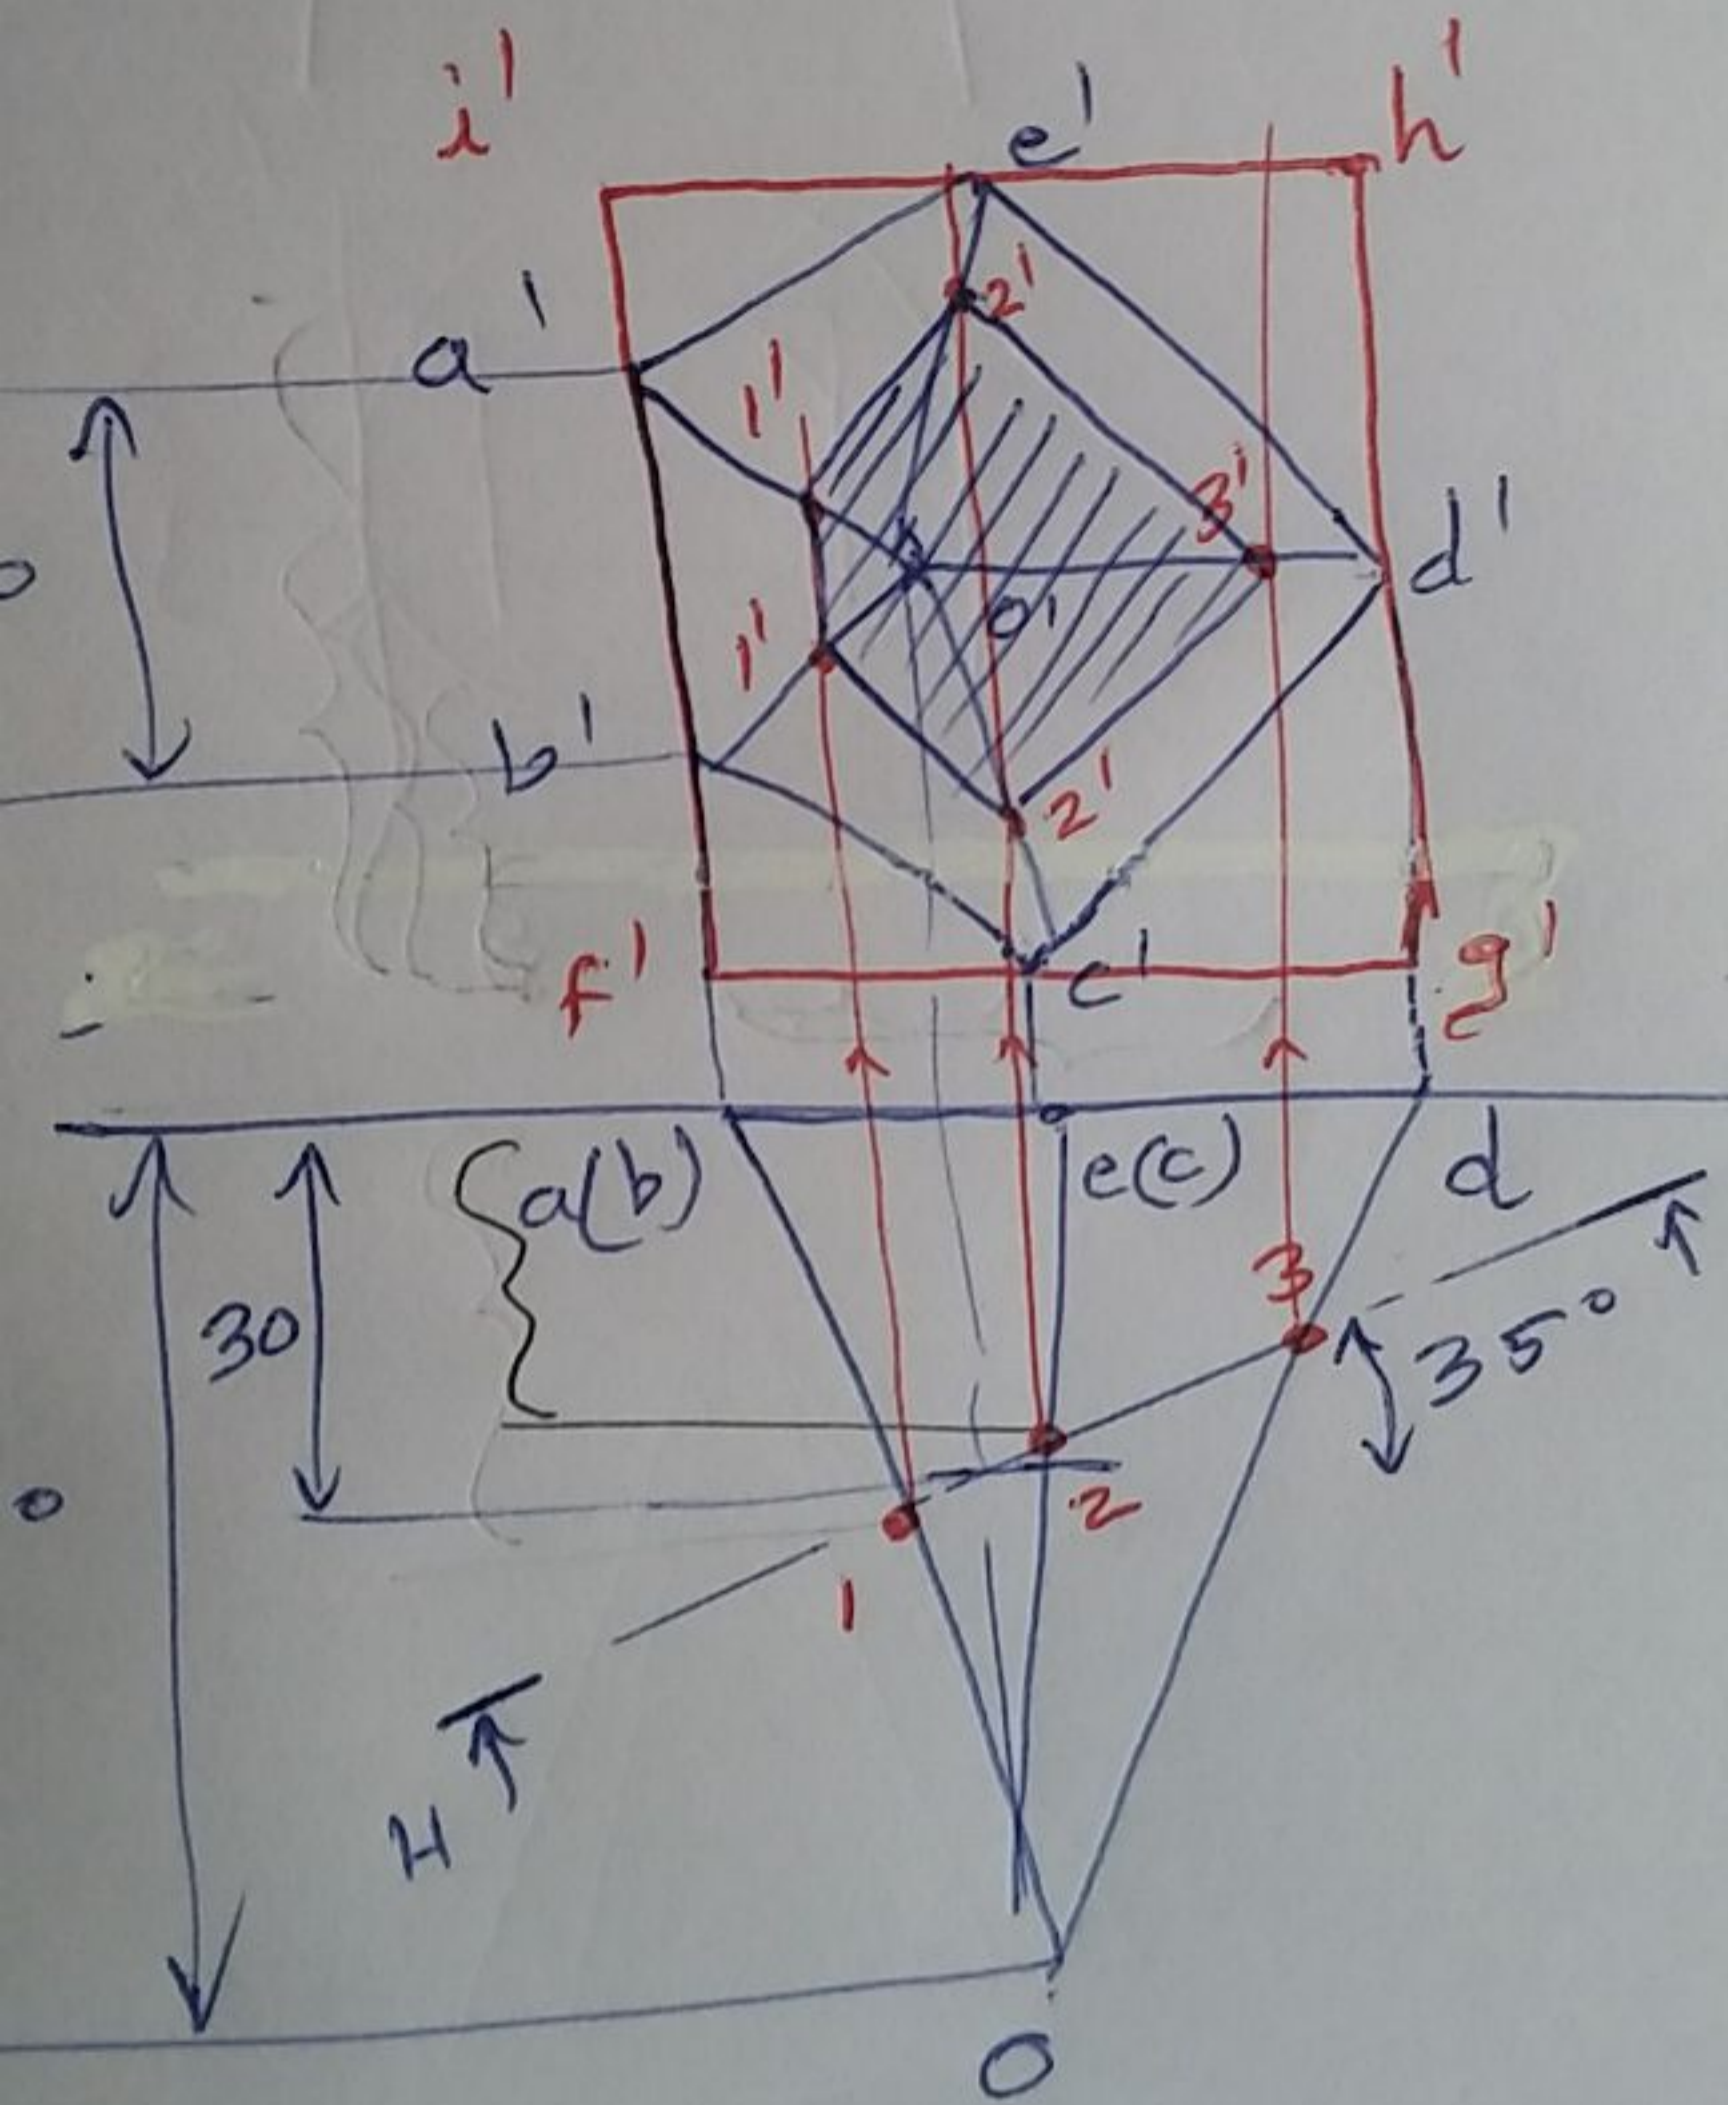 i' h'
e'
2'
a' 1'
3'
d'
o'
1'
b'
2'
f' c' g'
a(b) e(c) d
30
3
35°
2
1
H
O